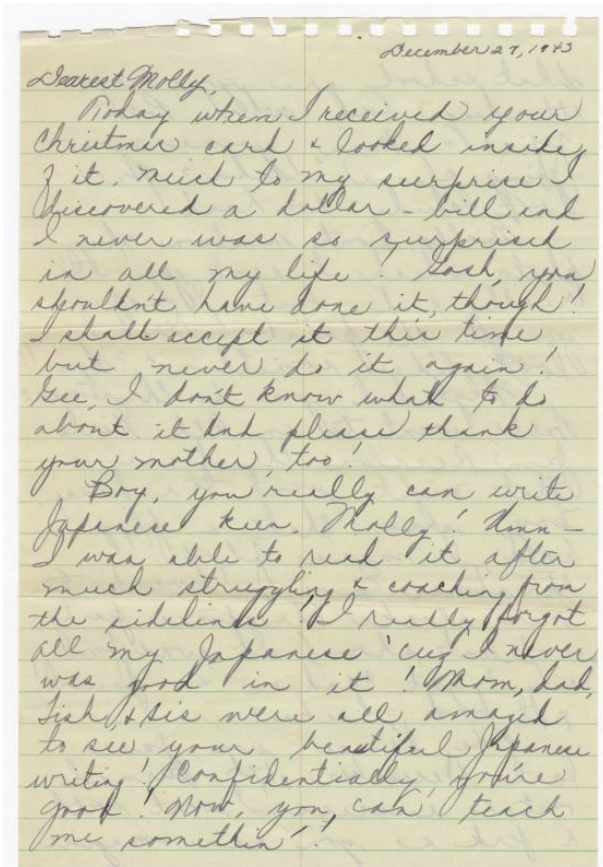 December 27, 1943
Dearest Molly,
Today when I received your
Christmas card & looked inside
of it, much to my surprise I
discovered a dollar-bill and
I never was so surprised
in all my life! Gosh, you
shouldn't have done it, though!
I shall accept it this time
but never do it again!
Gee, I don't know what to do
about it and please thank
your mother, too!
Boy, you really can write
Japanese keen, Molly! Umn -
I was able to read it after
much struggling & coaching from
the sidelines! I really forgot
all my Japanese 'cuz I never
was good in it! Mom, dad,
Tish, & sis were all amazed
to see your beautiful Japanese
writing! Confidentially, you're
good! Now, you, can teach
me somethin'!